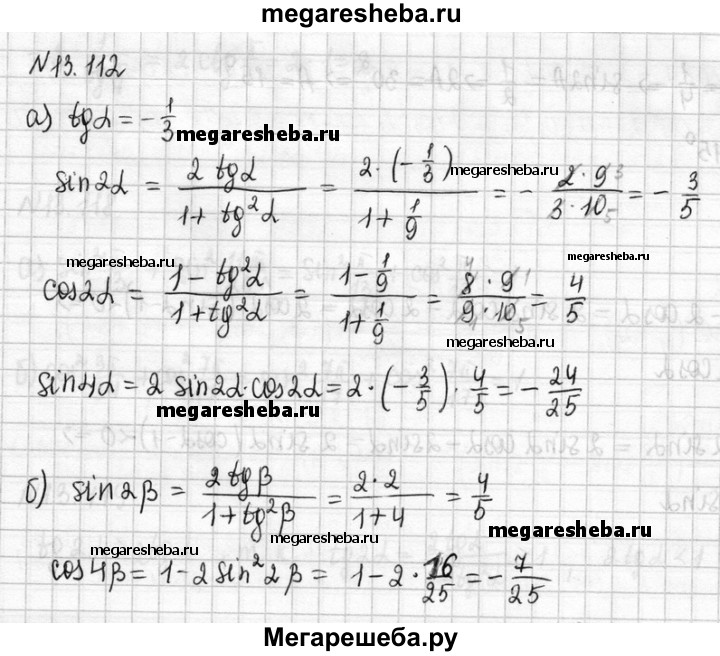 megaresheba.ru
N13.112
а) tgα = -1/3
megaresheba.ru
sin2α = 2 tgα / (1 + tg²α) = 2·(-1/3) / (1 + 1/9) = - 2·9 3 / 3·10 5 = - 3/5
megaresheba.ru
megaresheba.ru
megaresheba.ru
cos2α = (1 - tg²α) / (1 + tg²α) = (1 - 1/9) / (1 + 1/9) = 4 8·9 1 / 9·10 5 = 4/5
megaresheba.ru
sin4α = 2 sin2α·cos2α = 2·(-3/5)·4/5 = - 24/25
megaresheba.ru
б) sin2β = 2 tgβ / (1 + tg²β) = 2·2 / (1 + 4) = 4/5
megaresheba.ru
megaresheba.ru
cos4β = 1 - 2 sin²2β = 1 - 2·16/25 = - 7/25
Мегарешеба.ру